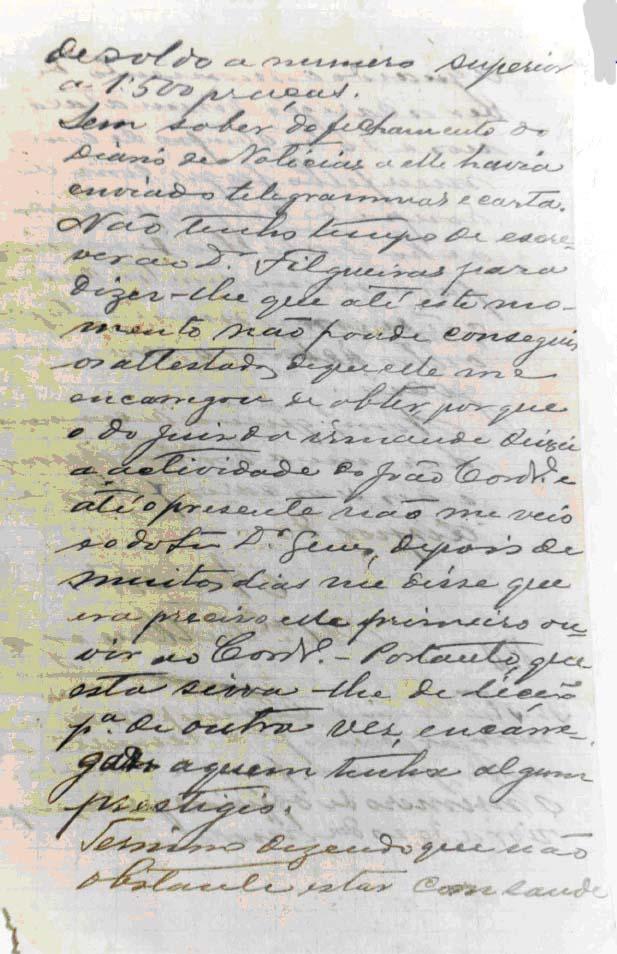 de soldo a numero superior
a 1:500 praças.
Sem saber do fechamento do
Diario de Noticias a elle havia
enviado telegrammas e carta.
Não tenho tempo de escre-
ver ao Dr. Filgueiras para
dizer-lhe que até este mo-
mento não poude conseguir
os attestados de que elle me
encarregou de obter, por que
o do juis da
a actividade do João Cordo. e
até o presente não me veio
e o do Dr. depois de
muitos dias me disse que
era preciso elle primeiro ou-
vir ao Cordo. - Portanto, que
esta sirva-lhe de lição
pa. de outra vez, encarre-
gar a quem tenha algum
prestigio.
Termino dizendo que não
obstante estar com saude